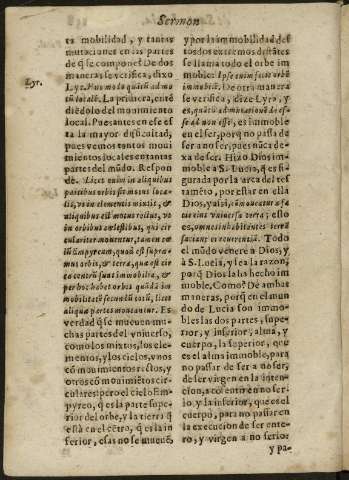 Sermon
ta mobilidad, y tantas
mutaciones en las partes
de q̃ se compone? De dos
maneras se verifica, dixo
Lyr.
Lyr. Vno modo quãtũ ad mo
tũ localẽ. La primera, entẽ
diẽdolo del mouimiento
local. Pues antes en esse es
ta la mayor dificultad,
pues vemos tantos moui
mientos locales en tantas
partes del mũdo. Respon
dẽ. Licet enim in aliquibus
partibus orbis sit motus loca-
lis, vt in elementis mixtis, &
aliquibus est motus rectus, vt
in orbibus cœlestibus, qui cir
culariter mouentur, tamen cœ
lũ Empyreum, quod est supre-
mus orbis, & terra, quæ est cir
ca centrũ sunt immobilia, &
per hoc habet orbis quãdã im
mobilitatẽ secundũ totũ, licet
aliqua partes moueantur. Es
verdad q̃ se mueuen mu-
chas partes del vniuerso,
como los mixtos, los ele-
mentos, y los cielos, vnos
cõ mouimientos rectos, y
otros cõ mouimiẽtos cir-
culares: pero el cielo Em-
pyreo, q̃ es la parte supe-
rior del orbe, y la tierra q̃
està en el cẽtro, q̃ es la in
ferior, essas no se mueuẽ,
y por la immobilidad des
tos dos extremos distãtes
se llama todo el orbe im
mobile: Ipse enim facit orbẽ
immobilẽ. De otra manera
se verifica, dize Lyra, y
es, quãtũ ad mutationẽ de es-
se ad non esse, es immoble
en el ser, porq̃ no passa de
ser a no ser, pues nũca de-
xa de ser. Hizo Dios im-
moble a S. Lucia, q̃ es fi-
gurada por la arca del tes
tamẽto, por estar en ella
Dios, y assi, cõmoueatur a fa
cie eius vniuersa terra; esto
es, omnes inhabitantes terrã
faciant ei reuerentiã. Todo
el mũdo venere a Dios, y
a S. Lucia, y lea la razon,
porq̃ Dios la ha hecho im
moble. Como? De ambas
maneras, porq̃ en el mun
do de Lucia son immo-
bles las dos partes, supe-
rior, y inferior, alma, y
cuerpo, la superior, que
es el alma immoble, para
no passar de ser a no ser,
de ser virgen en la intẽn-
cion, a cosentir en no ser-
lo y la inferior, que es el
cuerpo, para no passar en
la execucion de ser ente-
ro, y virgen a no serlo
y pa-